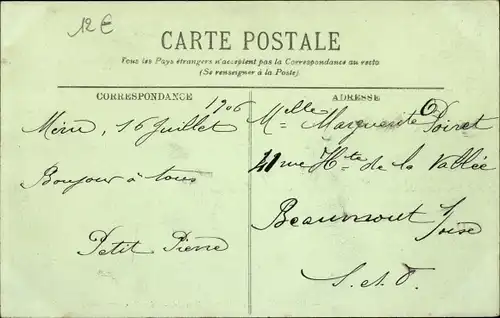 12€
CARTE POSTALE
Tous les Pays étrangers n'acceptent pas la Correspondance au recto
(Se renseigner à la Poste)
CORRESPONDANCE
1906
Méru, 16 Juillet
Bonjour à tous
Petit Pierre
ADRESSE
Melle Marguerite Poiret
41 rue Hte de la Vallée
Beaumont s/ oise
S. et O.